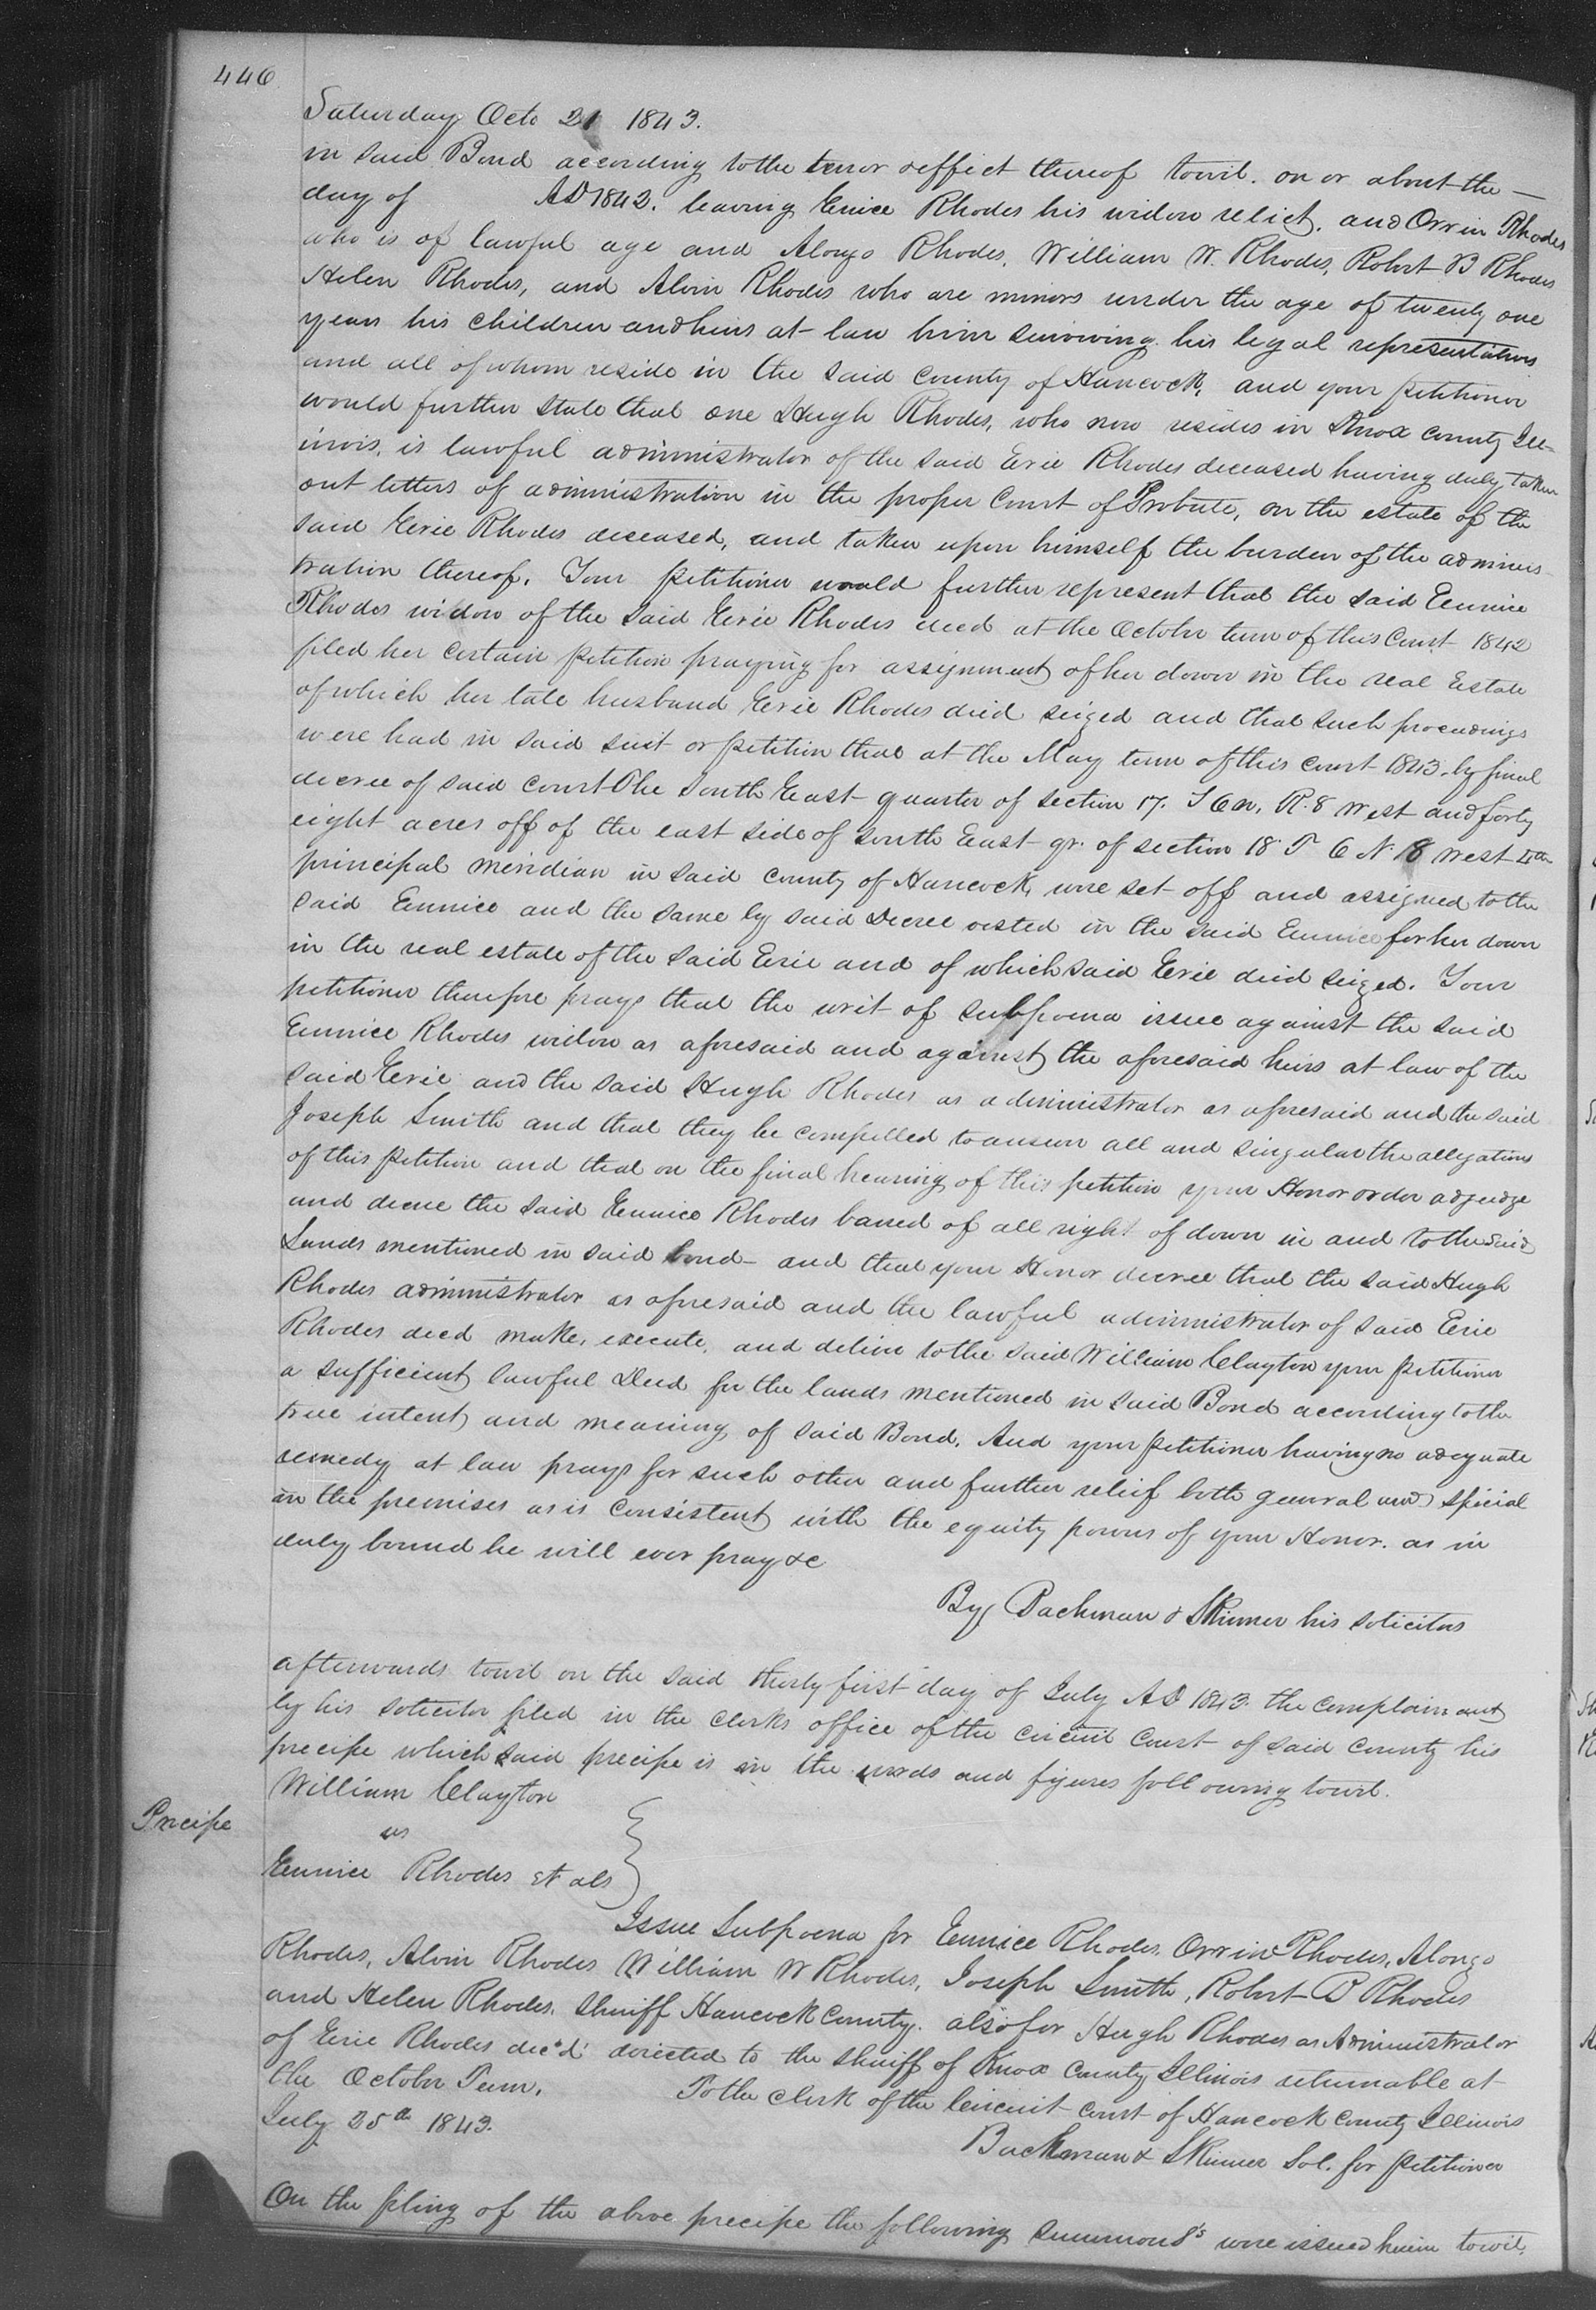 446
Saturday Octo 21 1843.
in said Bond according to the tenor & effect thereof towit. on or about the —
day of AD 1842. leaving Eunice Rhodes his widow relict. and Orrin Rhodes
who is of lawful age and Alonzo Rhodes, William W. Rhodes, Robert B Rhodes
Helen Rhodes, and Alvin Rhodes who are minors under the age of twenty one
years his children and heirs at law him surviving. his legal representatives
and all of whom reside in the said county of Hancock, and your petitioner
would further state that one Hugh Rhodes, who now resides in Knox county Ill-
inois, is lawful administrator of the said Erie Rhodes deceased having duly taken
out letters of administration in the proper Court of Probate, on the estate of the
said Erie Rhodes deceased, and taken upon himself the burden of the adminis
tration thereof. Your petitioner would further represent that the said Eunnice
Rhodes widow of the said Erie Rhodes decd at the October term of this Court 1842
filed her certain petition praying for assignment of her dower in the real Estate
of which her late husband Erie Rhodes died seized and that such proceedings
were had in said suit or petition that at the May term of this court 1843. by final
decree of said court The South East quarter of section 17. T 6 N, R. 8 West and forty
eight acres off of the east side of south East qr. of section 18 T 6 N. 8 West 4th
principal meridian in said county of Hancock, were set off and assigned to the
said Eunnice and the same by said Decree vested in the said Eunnice for her dower
in the real estate of the said Erie and of which said Erie died seized. Your
petitioner therefore prays that the writ of subpoena issue against the said
Eunnice Rhodes widow as aforesaid and against the aforesaid heirs at law of the
said Erie and the said Hugh Rhodes as administrator as aforesaid and the said
Joseph Smith and that they be compelled to answer all and singular the allegations
of this petition and that on the final hearing of this petition your Honor order adjudge
and decree the said Eunnice Rhodes barred of all right of dower in and to the said
Lands mentioned in said bond - and that your Honor decree that the said Hugh
Rhodes administrator as aforesaid and the lawful administrator of said Erie
Rhodes decd make, execute, and deliver to the said William Clayton your petitioner
a sufficient lawful Deed for the lands mentioned in said Bond according to the
true intent and meaning of said Bond. And your petitioner having no adequate
remedy at law prays for such other and further relief both general and special
in the premises as is consistent with the equity powers of your Honor. as in
duty bound he will ever pray &c
By Bachman & Skinner his solicitors
afterwards towit on the said thirty first day of July AD 1843. the complainant
by his solicitor filed in the clerks office of the circuit Court of said county his
precipe which said precipe is in the words and figures following towit.
William Clayton
Precipe
vs
Eunnice Rhodes et als
Issue Subpoena for Eunnice Rhodes. Orrin Rhodes, Alonzo
Rhodes, Alvin Rhodes William W Rhodes, Joseph Smith, Robert B Rhodes
and Helen Rhodes. Sheriff Hancock County. also for Hugh Rhodes as Administrator
of Erie Rhodes dec'd directed to the sheriff of Knox County Illinois returnable at
the October Term. To the clerk of the Circuit court of Hancock County Illinois
July 25th 1843.
Backman & Skinner Sol. for petitioner
On the filing of the above precipe the following summons's were issued herein towit,